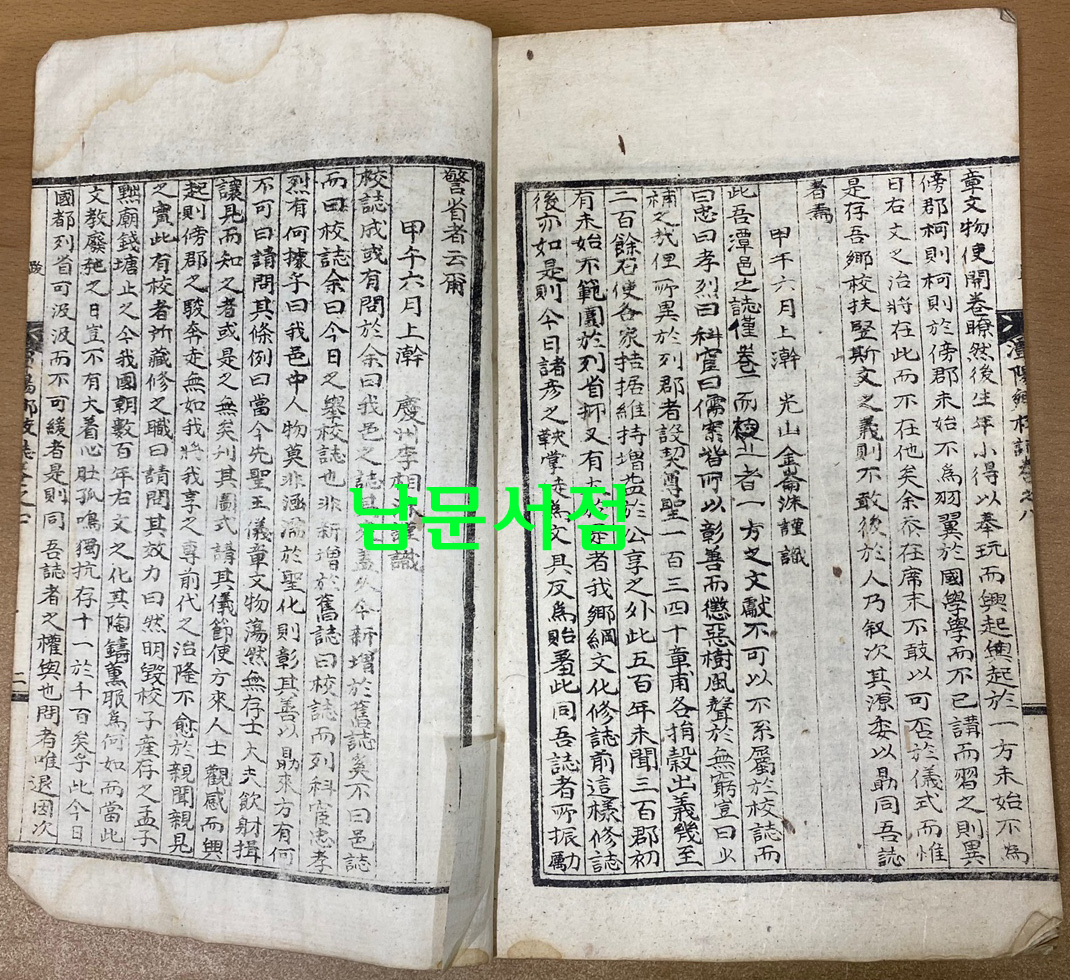 章文物使開卷瞭然後生年小得以奉玩而興起興起於一方未始不爲
傍郡柯則柯則於傍郡未始不爲羽翼於國學學而不已講而習之則異
日右文之治將在此而不在他矣余忝在席末不敢以可否於儀式而惟
是存吾鄉校扶竪斯文之義則不敢後於人乃叙次其源委以勗同吾誌
者焉
甲午六月上澣 光山 金崙洙謹識
此吾潭邑之誌僅卷一而校上者一方之文獻不可以不系屬於校誌而
曰忠曰孝烈曰科宦曰儒案皆所以彰善而懲惡樹風聲於無窮豈曰少
補之哉但所異於列郡者設契尊聖一百三四十章甫各捐穀出義幾至
二百餘石使各家拮据維持增益於公享之外此五百年未聞三百郡初
有未始不範圍於列省抑又有大是者我鄉綱文化修誌前這樣修誌
後亦如是則今日諸彦之鞅掌徒爲文具反爲貽羞此同吾誌者所振勵
警省者云爾
甲午六月上澣 慶州李相洙謹識
校誌成或有問於余曰我邑之誌 今新增於舊誌奚不曰邑誌
而曰校誌余曰今日之擧校誌也非新增於舊誌曰校誌而列科宦忠孝
烈有何據乎曰我邑中人物莫非涵濡於聖化則彰其善以勗來方有何
不可曰請問其條例曰當今先聖王儀章文物蕩然無存士大夫飮射揖
讓見而知之者或是之無矣刊其圖式講其儀節使方來人士觀感而興
起則傍郡之駿奔走無如我將我享之尊前代之治隆不愈於親聞親見
之實此有校者所藏修之職曰請問其效力曰然明毀校子產存之孟子
黜廟錢塘止之今我國朝數百年右文之化其陶鑄薰服爲何如而當此
文教廢弛之日豈不有大着心肚孤鳴獨抗存十一於千百矣乎此今日
國都列省可汲汲而不可緩者是則同吾誌者之權輿也問者唯退因次
潭陽鄉校誌卷之八
跋
二
남문서점